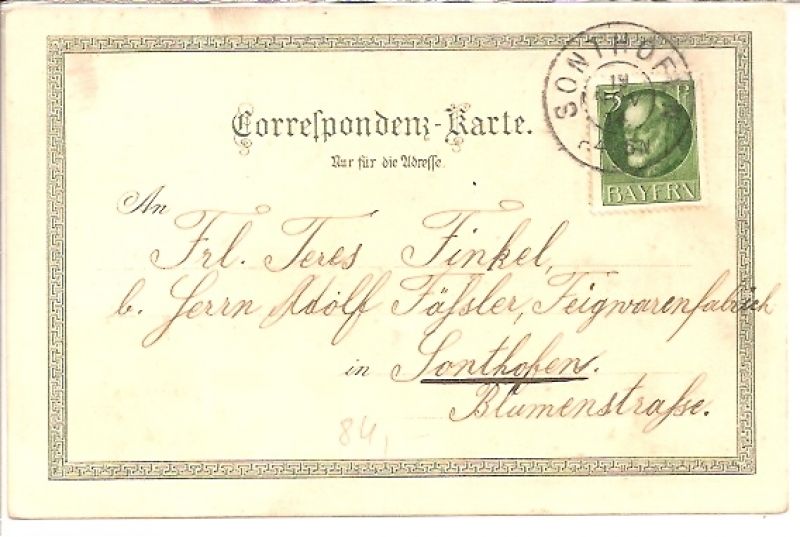 SONTHOF
19
5 Pf
BAYERN
Correspondenz-Karte.
Nur für die Adresse.
An
Frl. Teres Finkel,
b. Herrn Adolf Fäßler, Teigwarenfabrick
in Sonthofen.
Blumenstraße.
84,-